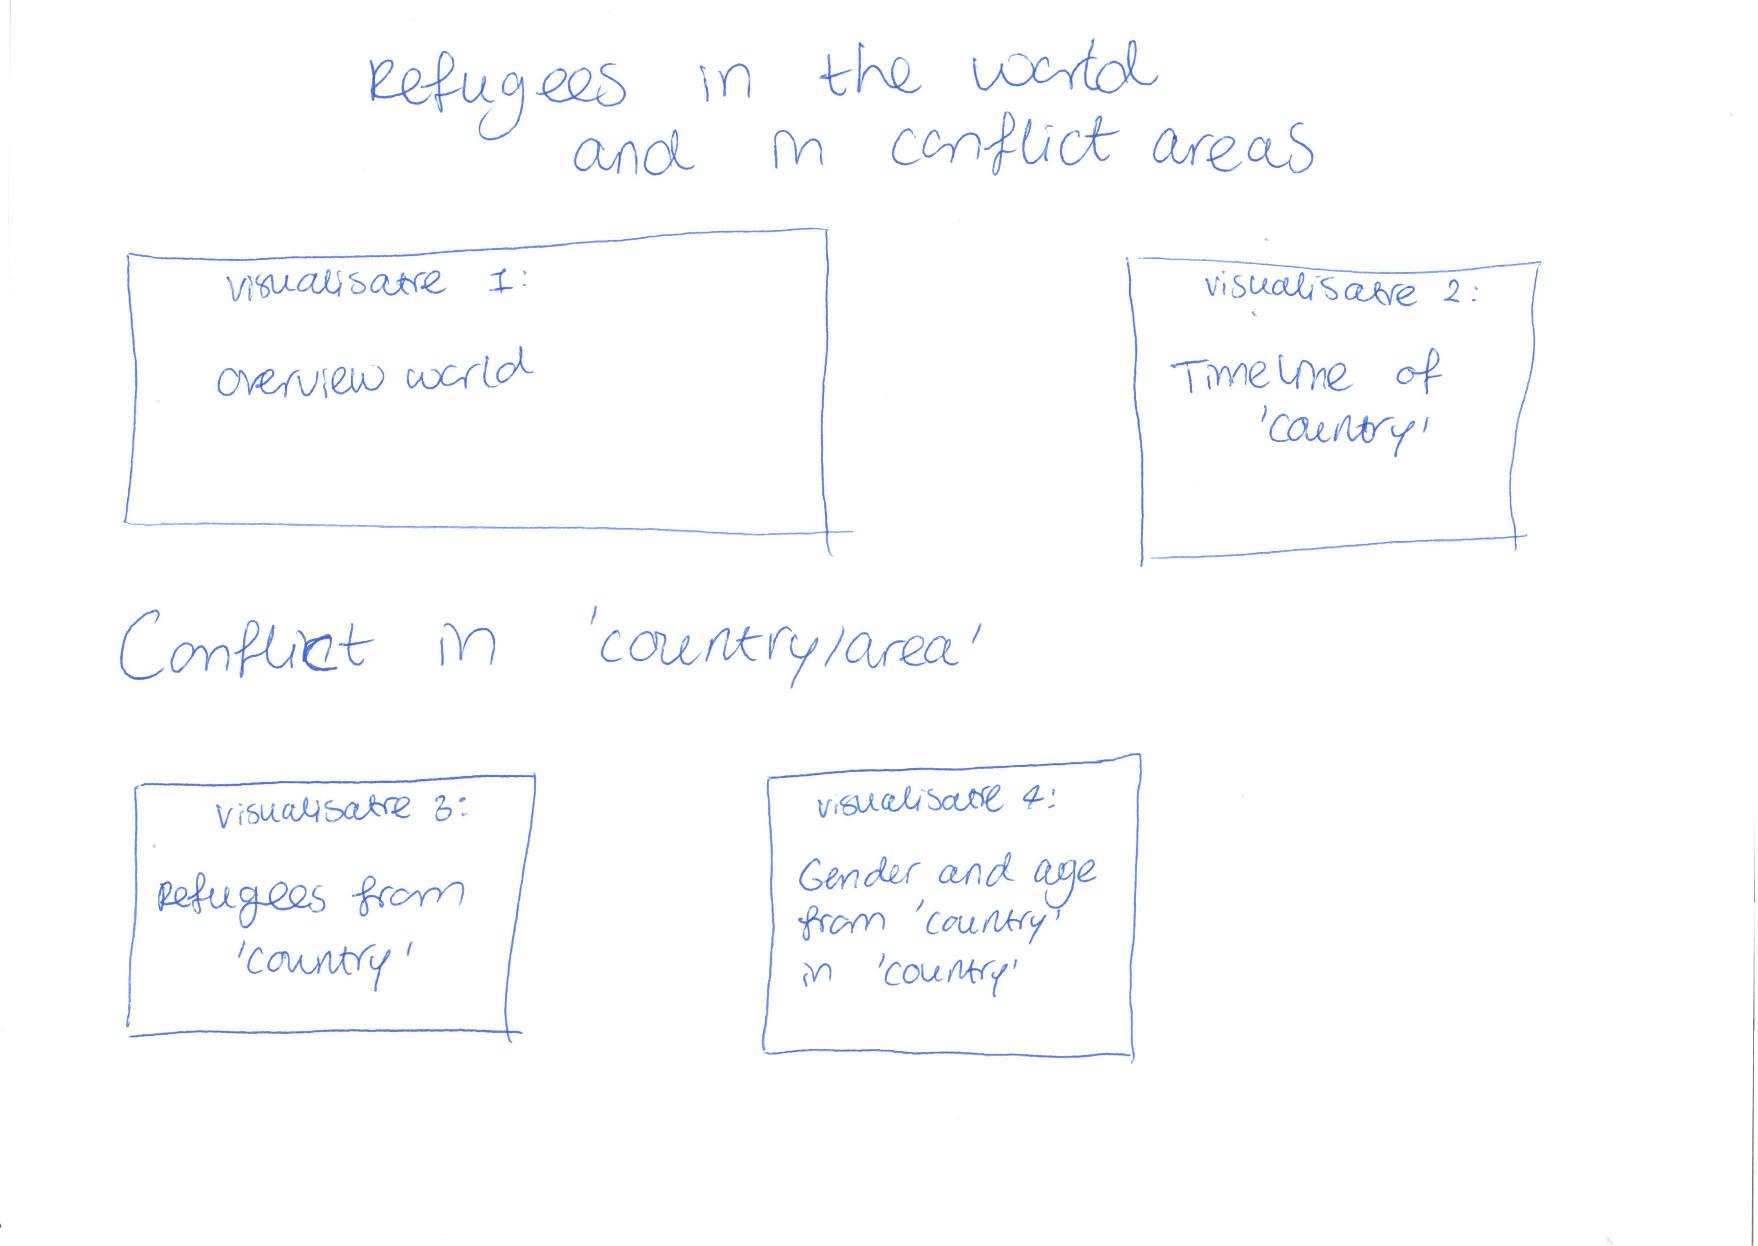 Refugees in the world
and in conflict areas
visualisatie 1:
overview world
visualisatie 2:
Timeline of
'country'
Conflict in 'country/area'
visualisatie 3:
Refugees from
'country'
visualisatie 4:
Gender and age
from 'country'
in 'country'